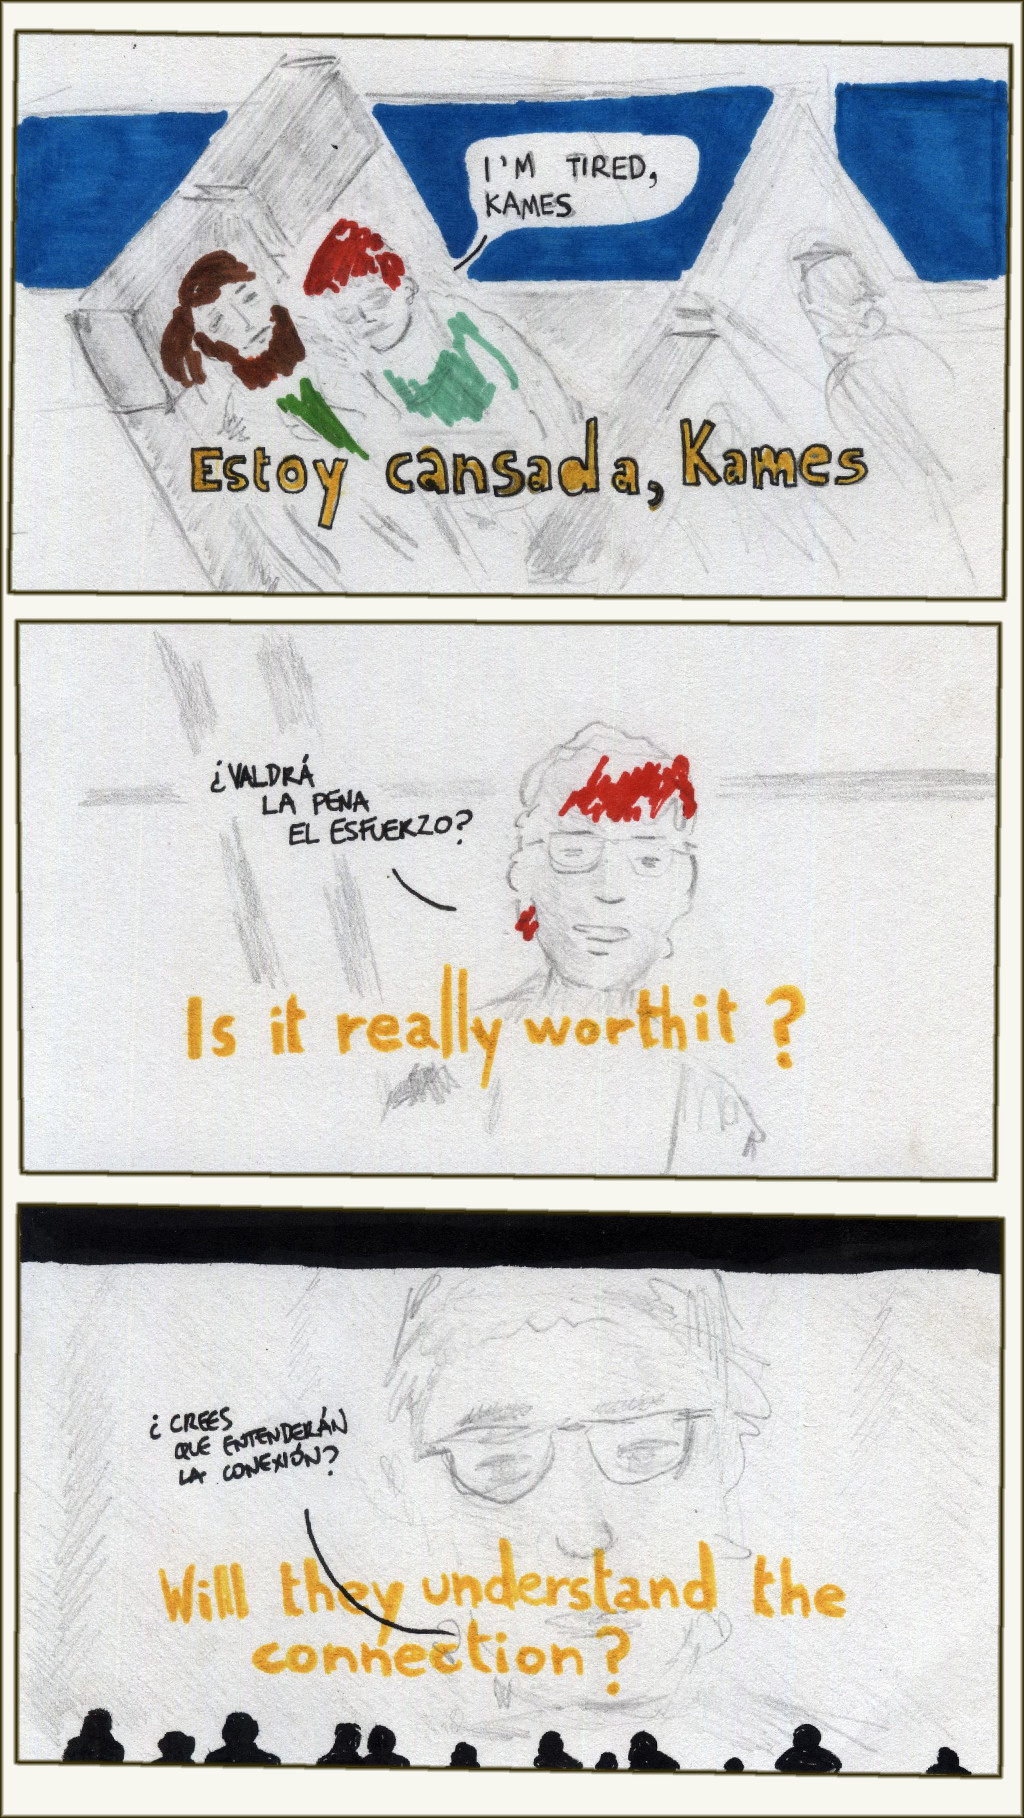 I'M TIRED,
KAMES
Estoy cansada, Kames
¿VALDRÁ
LA PENA
EL ESFUERZO?
Is it really worth it?
¿CREES
QUE ENTENDERÁN
LA CONEXIÓN?
Will they understand the
connection?